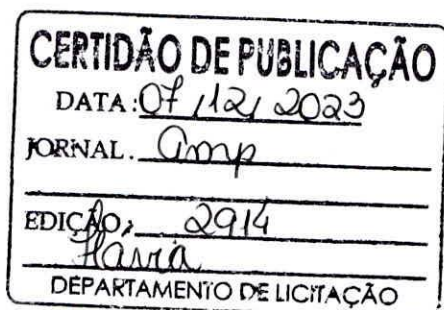 CERTIDÃO DE PUBLICAÇÃO
DATA: 07/12/2023
JORNAL. amp
EDIÇÃO, 2914
Flavia
DEPARTAMENTO DE LICITAÇÃO